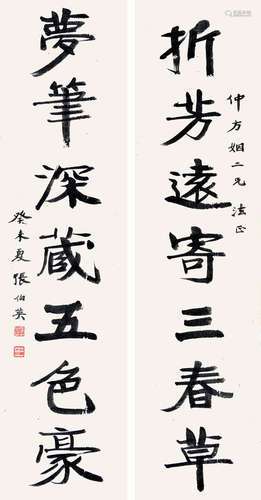 折芳遠寄三春草
仲方姻二兄 法正
夢筆深蔵五色豪
癸未夏 張伯英